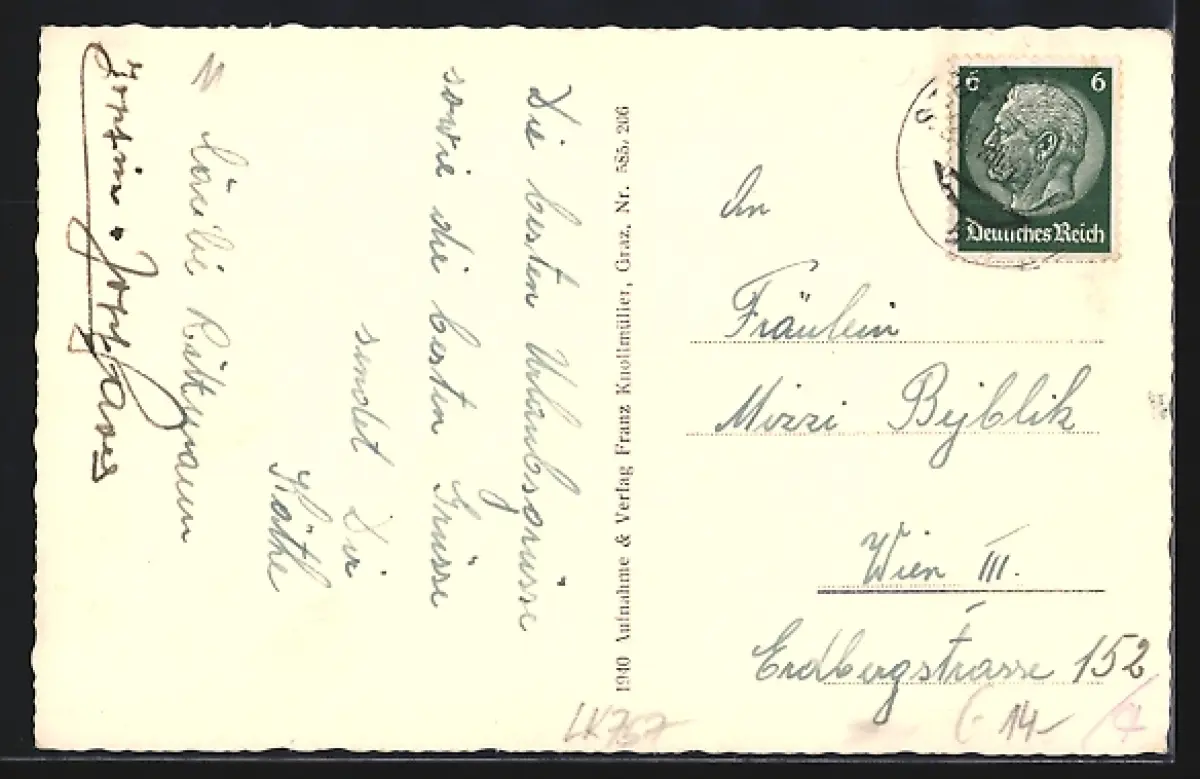 Die besten Urlaubsgrüsse
sowie die besten Grüsse
sendet Dir
Käthe
1940 Aufnahme & Verlag Franz Knollmüller, Graz, Nr. 585/206
6 6
Deutsches Reich
An
Fräulein
Mizzi Bijblik
Wien III.
Erdbergstrasse 152
14
LK757